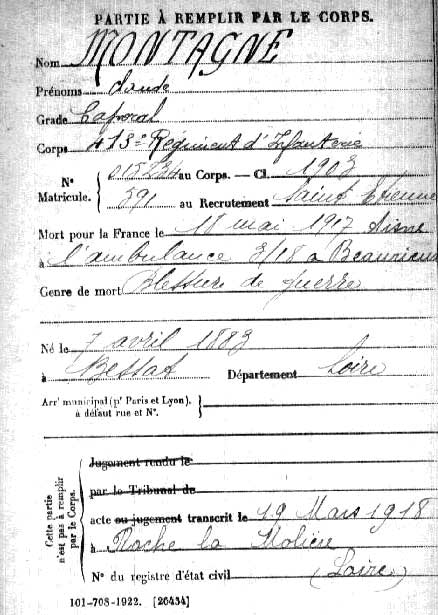 PARTIE À REMPLIR PAR LE CORPS.
Nom MONTAGNE
Prénoms Claude
Grade Caporal
Corps 413e Régiment d'Infanterie
N° Matricule. { 015234 au Corps. — Cl. 1903
591 au Recrutement Saint Etienne
Mort pour la France le 18 mai 1917 Aisne
à l'ambulance 3/18 à Beaurieux
Genre de mort Blessure de guerre
Né le 7 avril 1883
à Bessat Département Loire
Arrt municipal (pr Paris et Lyon), à défaut rue et N°. }
Cette partie n'est pas à remplir par le Corps.
Jugement rendu le
par le Tribunal de
acte ou jugement transcrit le 19 Mars 1918
à Roche la Molière
N° du registre d'état civil (Loire)
101-708-1922. [26434]